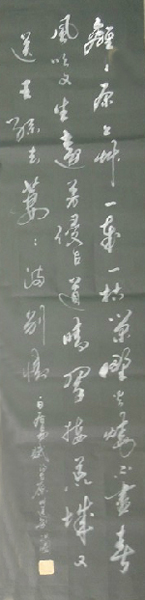 離離原上艸一歳一枯榮野火燒不盡春
風吹又生遠芳侵古道晴翠接荒城又
送王孫去萋萋滿別情